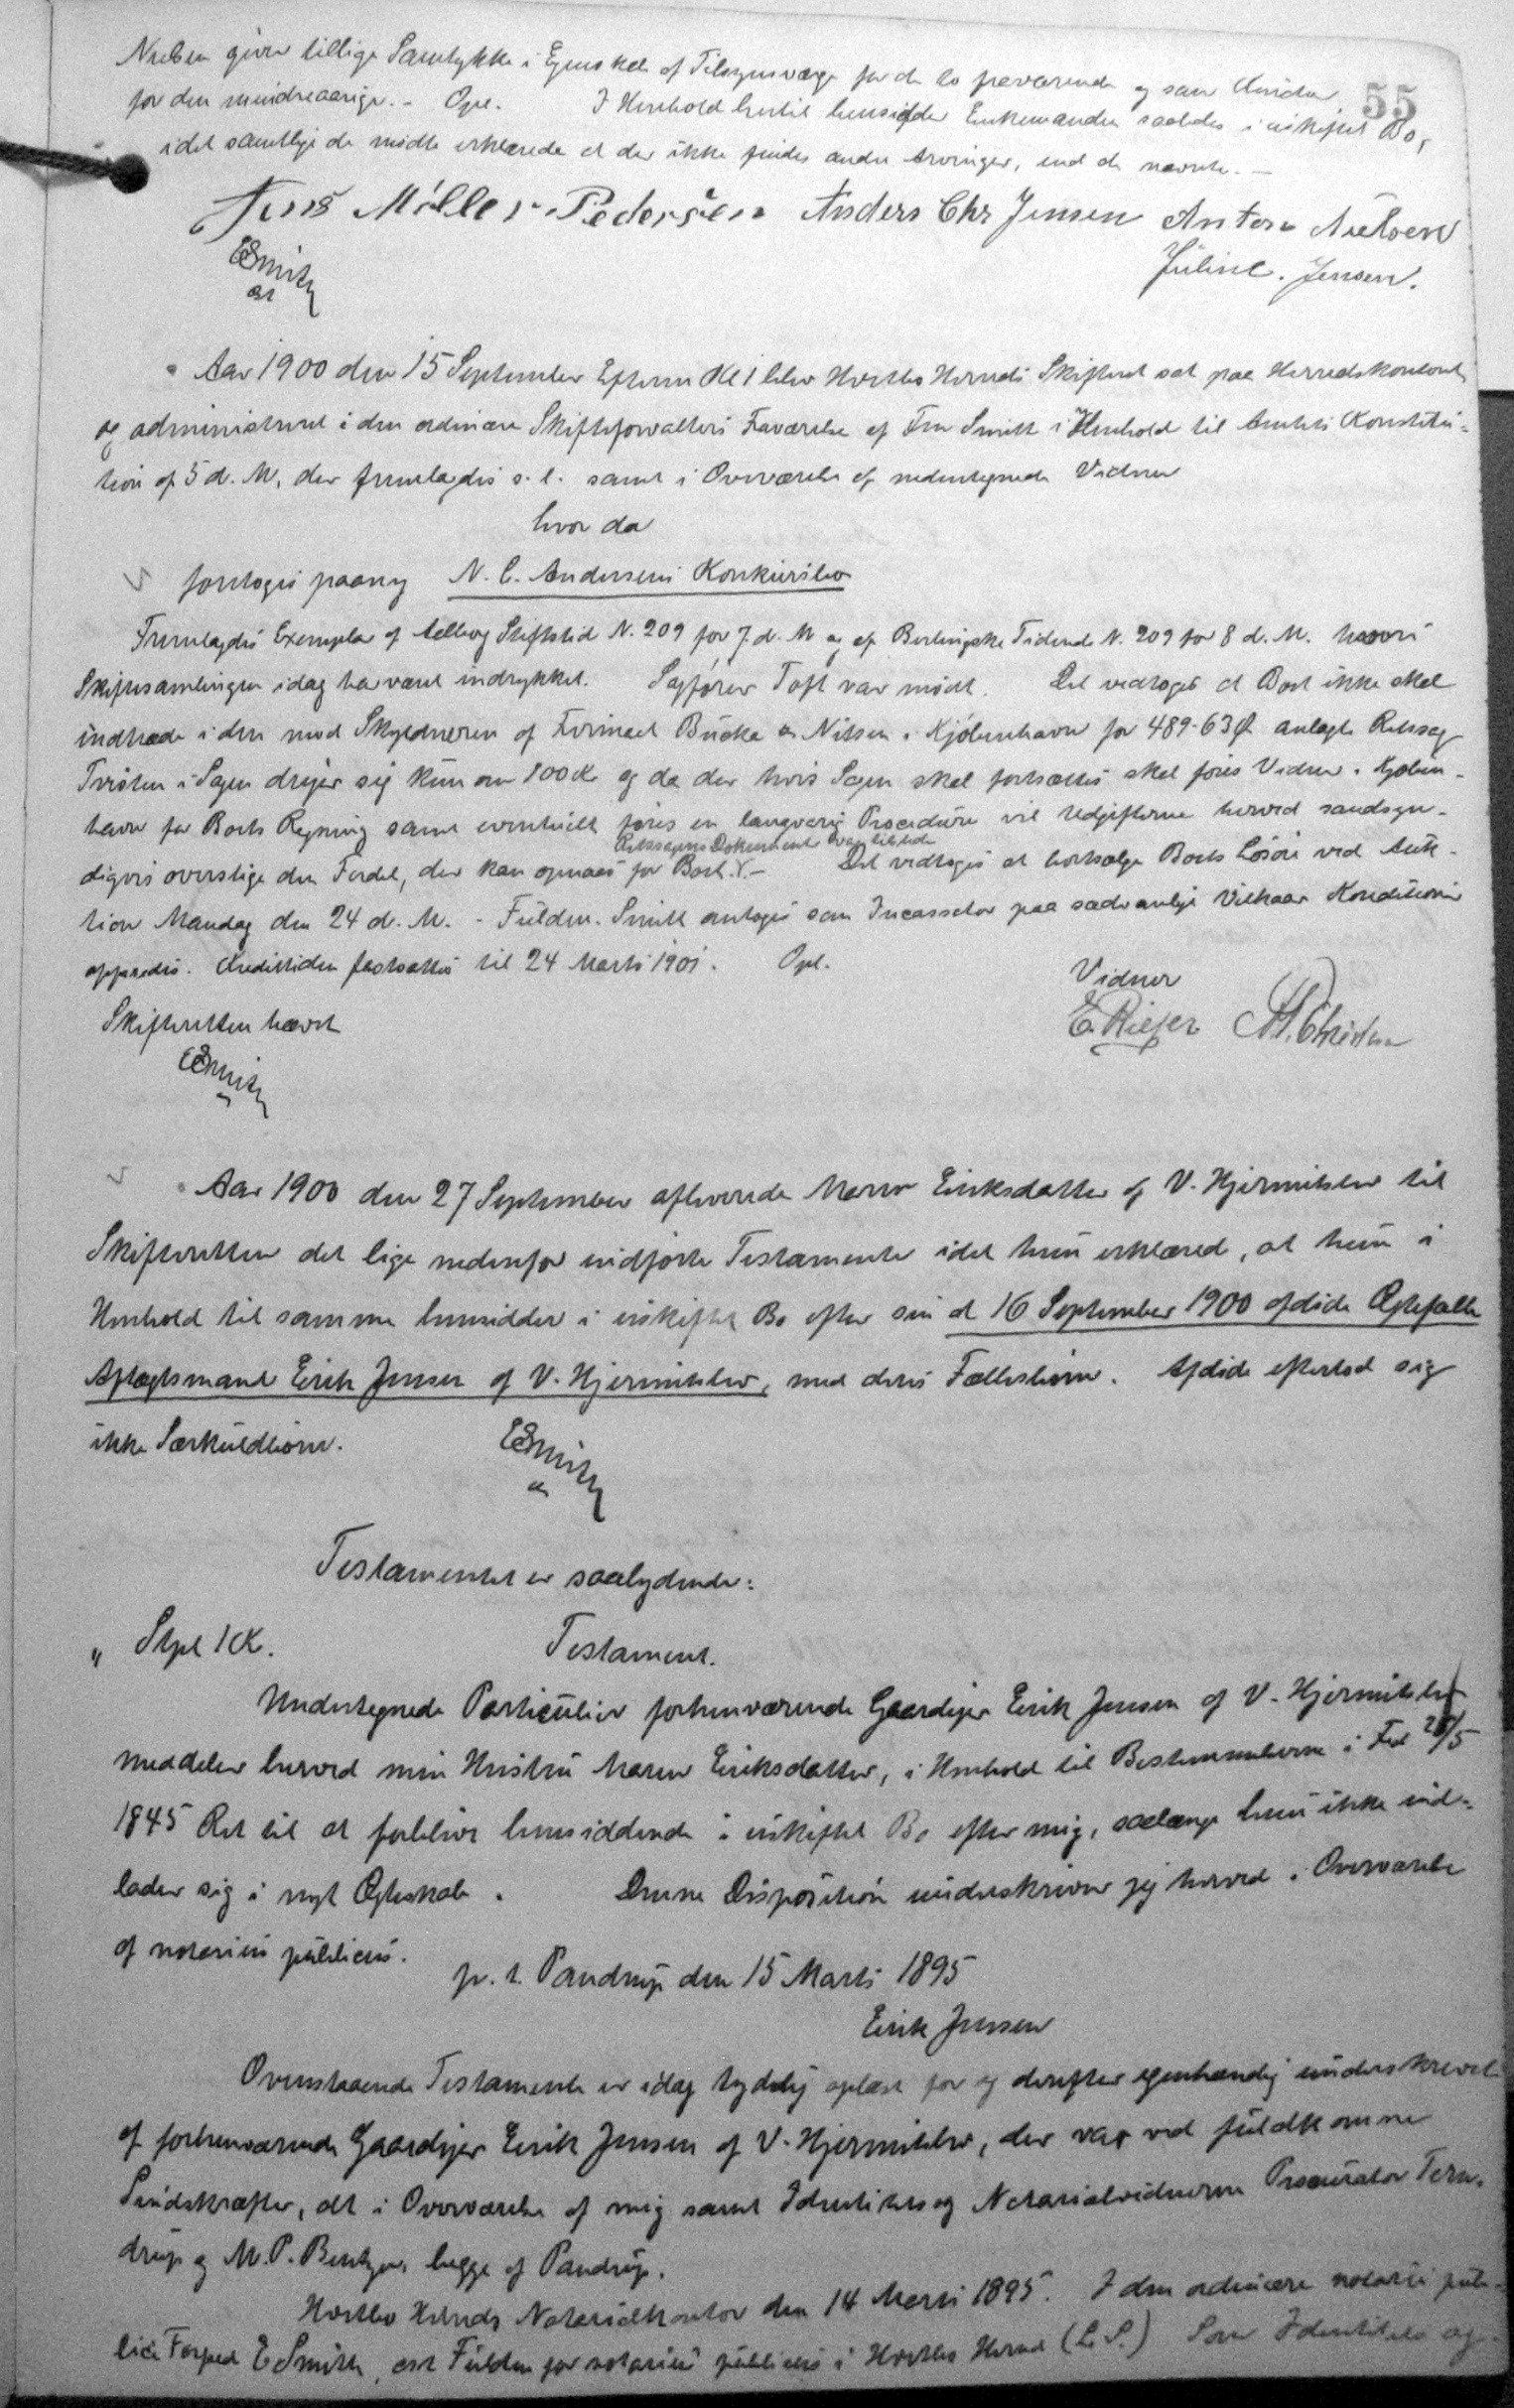 55
Nielsen giver tillige Samtykke i Egenskab af Tilsynsværge for de to fraværende og som
for den mindreaarige. - Opl. I Henhold hertil hensidder Enkemanden saaledes i uskiftet Bo,
idet samtlige de mødte erklærede at der ikke findes andre Arvinger, end de nævnte. -
Jens Møller Pedersen Anders Chr Jensen Anton Nielsen
Juline. Jensen.
ESmith
Aar 1900 den 15 September Efterm Kl 1 blev Hvetbo Herreds Skifteret sat paa Herredskontoret
og administreret i den ordinære Skifteforvalters Fraværelse af Fm Smith i Henhold til Amtets Konstitu-
tion af 5 d. M, der fremlagdes s. l. samt i Overværelse af nedentegnede Vidner
hvor da
foretoges paany N. C. Andersens Konkursbo
Fremlagdes Exemplar af Aalborg Stiftstid N. 209 for 7. d. M og af Berlingske Tidende N. 209 for 8 d. M. hvori
Skiftesamlingen idag har været indrykket. Sagfører Toft var mødt. Det vedtoges at Boet ikke skal
indtræde i den mod Skyldneren af Firmaet Bücka & Nissen i Kjøbenhavn for 489-63 Ø anlagte Retssag
Tvisten i Sagen drejer sig kun om 100 Kr og da der hvis Sagen skal fortsættes skal føres Vidner i Kjøben-
havn for Boets Regning samt eventuelt føres en langvarig Procedure vil Udgifterne herved sandsyn-
Retssagens Dokumenter var tilstede
digvis overstige den Fordel, der kan opnaaes for Boet. - Det vedtoges at bortsælge Boets Løsøre ved Auk-
tion Mandag den 24 d. M. - Fuldm. Smith antoges som Incassator paa sædvanlige Vilkaar Konditioner
oplæstes. Kredittiden fastsattes til 24 Marts 1901. Opl.
Vidner
Skifteretten hævet
ESmith
Aar 1900 den 27 September afleverede Maren Eriksdatter af V. Hjermitslev til
Skifteretten det lige nedenfor indførte Testamente idet hun erklærede, at hun i
Henhold til samme hensidder i uskiftet Bo efter sin d 16 September 1900 afdøde Ægtefælle
Aftægtsmand Erik Jensen af V. Hjermitslev, med deres Fællesbørn. Afdøde efterlod sig
ikke Særkuldbørn.
ESmith
Testamentet er saalydende:
" Stpl 1 Kr. Testament.
Undertegnede Particulier forhenværende Gaardejer Erik Jensen af V. Hjermitslev
meddeler herved min Hustru Maren Eriksdatter, i Henhold til Bestemmelserne i Fed 21/5
1845 Ret til at forblive hensiddende i uskiftet Bo efter mig, saalænge hun ikke ind-
lader sig i nyt Ægteskab. Denne Disposition underskriver jeg herved i Overværelse
af notarius publicus.
p. t. Pandrup den 15 Marts 1895
Erik Jensen
Ovenstaaende Testamente er idag tydelig oplæst for og derefter egenhændig underskrevet
af forhenværende Gaardejer Erik Jensen af V. Hjermitslev, der var ved fuldkomne
Sindskræfter, alt i Overværelse af mig samt Identitets og Notarialvidnerne Procurator Tern-
drup og M. P. Bentzen, begge af Pandrup.
Hvetbo Herreds Notarialkontor den 14 Marts 1895. I den ordinære notarii pub-
lici Forfald E Smith, est Fuldm for notarius publicus i Hvetbo Herred (L. S.) Som Identitets og